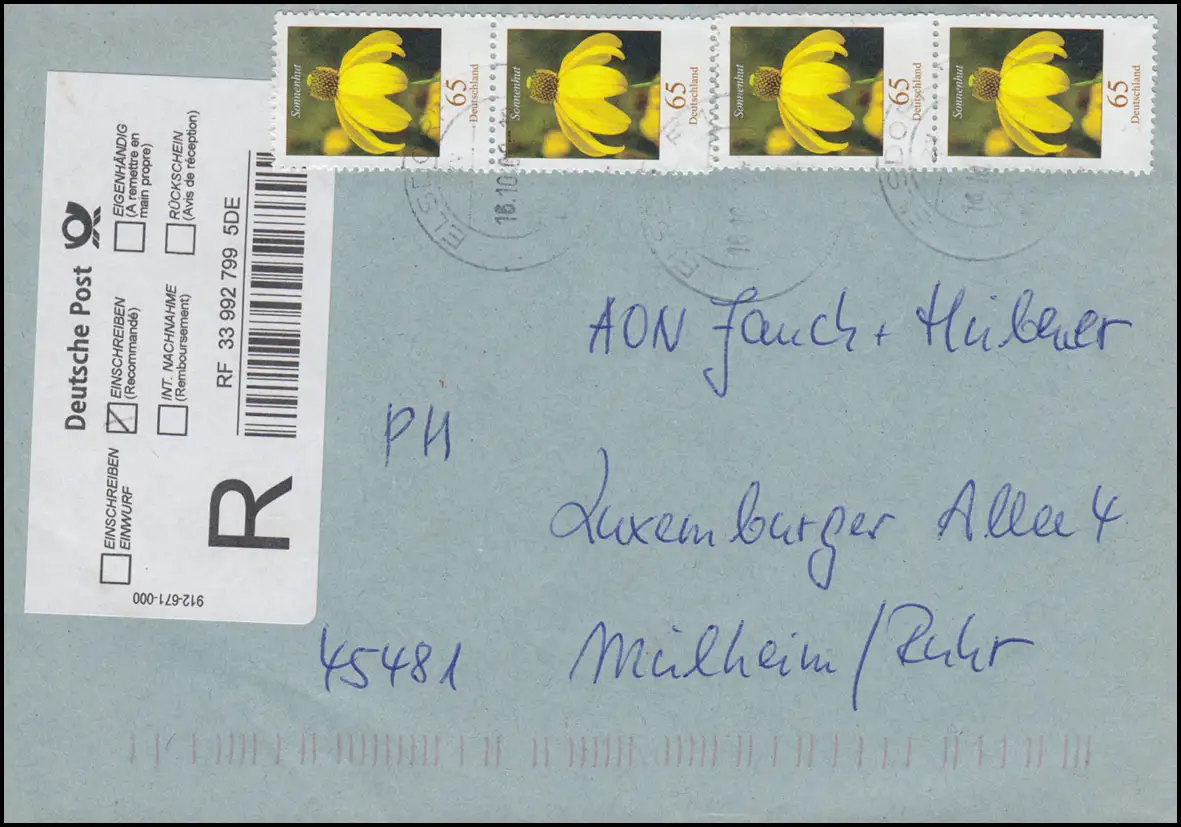 Sonnenhut 65 Deutschland
Sonnenhut 65 Deutschland
Sonnenhut 65 Deutschland
Sonnenhut 65 Deutschland
16.10
16.10
16.10
Deutsche Post
EINSCHREIBEN
EINWURF
EINSCHREIBEN
(Recommandé)
EIGENHÄNDIG
(A remettre en
main propre)
INT. NACHNAHME
(Remboursement)
RÜCKSCHEIN
(Avis de réception)
R
RF 33 992 799 5DE
912-671-000
AON Jauch + Hübener
PH
Luxemburger Allee 4
45481 Mülheim/Ruhr